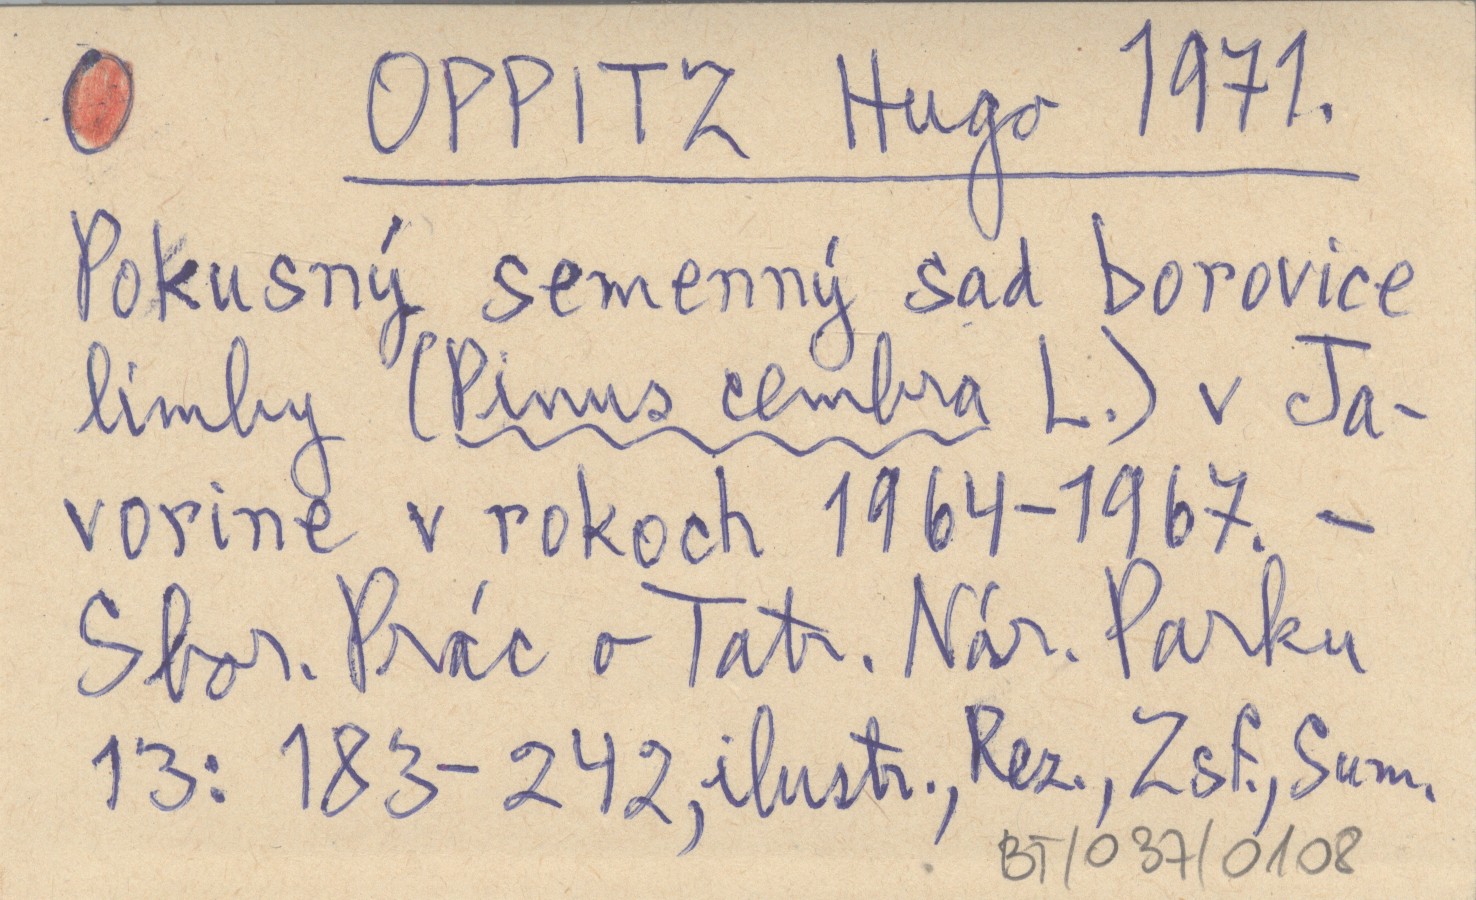 OPPITZ Hugo 1971.
Pokusný semenný sad borovice
limby (Pinus cembra L.) v Ja-
vorine v rokoch 1964-1967. -
Sbor. Prác o Tatr. Nár. Parku
13: 183-242, ilustr., Rez., Zsf., Sum.
BT/037/0108